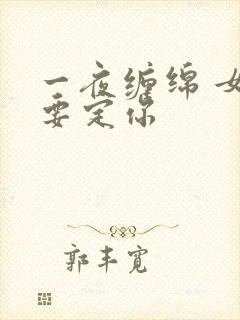 一夜缠绵 女
要定你
郭丰宽